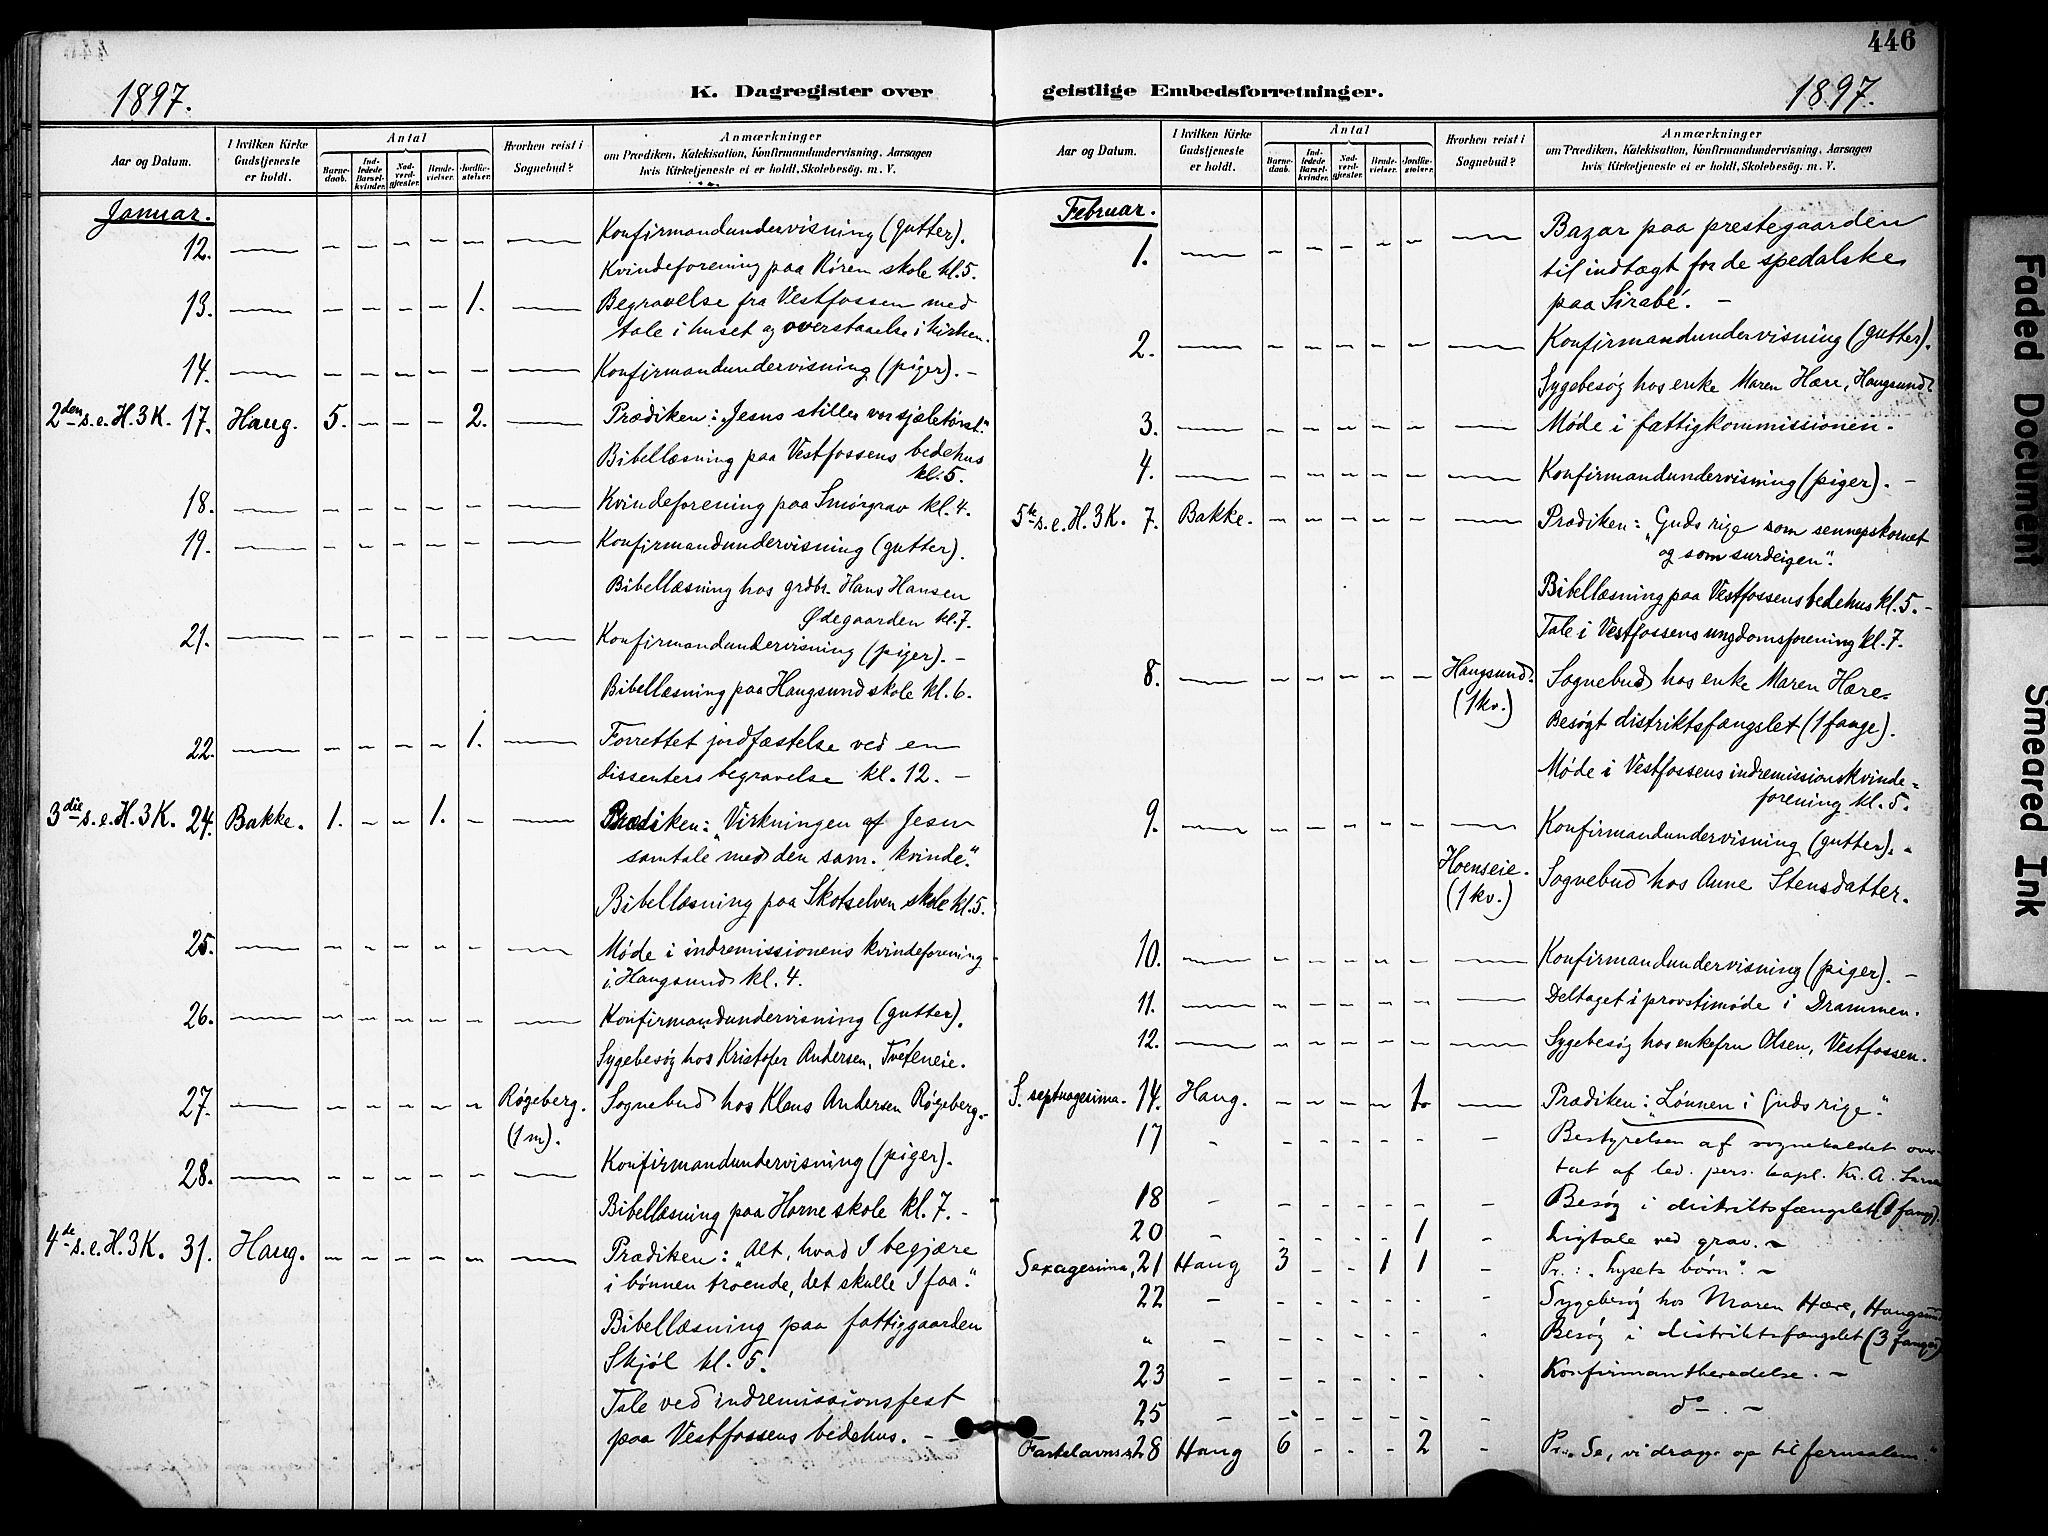 446
1897.
K. Dagregister over
geistlige Embedsforretninger.
1897.
Aar og Datum.
I hvilken Kirke Gudstjeneste er holdt.
Antal
Barnedaab.
Indledede Barselkvinder.
Nadverdgjester.
Brudevielser.
Jordfæstelser.
Hvorhen reist i Sognebud?
Anmærkninger
om Prædiken, Katekisation, Konfirmandundervisning, Aarsagen
hvis Kirketjeneste ei er holdt, Skolebesøg, m. V.
Januar.
12. — – – – – – — Konfirmandundervisning (gutter).
Kvindeforening paa Røren skole kl. 5.
13. — – – – – 1. — Begravelse fra Vestfossen med
tale i huset og overstaaelse i kirken.
14. — – – – – – — Konfirmandundervisning (piger). –
2den s. e. H. 3 K. 17. Haug. 5. – – – 2. — Prædiken: „Jesus stiller vor sjæletørst."
Bibellæsning paa Vestfossens bedehus
kl. 5.
18. — – – – – – — Kvindeforening paa Smørgrav kl. 4.
19. — – – – – – — Konfirmandundervisning (gutter).
Bibellæsning hos grdbr. Hans Hansen
Ødegaarden kl. 7.
21. — – – – – – — Konfirmandundervisning (piger). –
Bibellæsning paa Haugsund skole kl. 6.
22. — – – – – 1. — Forrettet jordfæstelse ved en
dissenters begravelse kl. 12. –
3die s. e. H. 3 K. 24. Bakke. 1. – – 1. – — Prædiken: „Virkningen af Jesu
samtale med den sam. kvinde."
Bibellæsning paa Skotselven skole kl. 5.
25. — – – – – – — Møde i indremissionens kvindeforening
i Haugsund kl. 4.
26. — – – – – – — Konfirmandundervisning (gutter).
Sygebesøg hos Kristofer Andersen, Tveteneie.
27. — – – – – – Røgeberg. Sognebud hos Klaus Andersen Røgeberg.
(1 m).
28. — – – – – – — Konfirmandundervisning (piger).
Bibellæsning paa Horne skole kl. 7. –
4de s. e. H. 3 K. 31. Haug. – – – – – — Prædiken: „Alt, hvad I begjære
i bønnen troende, det skulle I faa."
Bibellæsning paa fattiggaarden
Skjøl kl. 5.
Tale ved indremissionsfest
paa Vestfossens bedehus. – –
Aar og Datum.
I hvilken Kirke Gudstjeneste er holdt.
Antal
Barnedaab.
Indledede Barselkvinder.
Nadverdgjester.
Brudevielser.
Jordfæstelser.
Hvorhen reist i Sognebud?
Anmærkninger
om Prædiken, Katekisation, Konfirmandundervisning, Aarsagen
hvis Kirketjeneste ei er holdt, Skolebesøg, m. V.
Februar.
1. — – – – – – — Bazar paa prestegaarden
til indtægt for de spedalske
paa Sirabé. –
2. — – – – – – — Konfirmandundervisning (gutter).
Sygebesøg hos enke Maren Hære, Haugsund.
3. — – – – – – — Møde i fattigkommissionen.
4. — – – – – – — Konfirmandundervisning (piger). –
5te s. e. H. 3 K. 7. Bakke. – – – – – — Prædiken: „Guds rige som sennepskornet
og som surdeigen".
Bibellæsning paa Vestfossens bedehus kl. 5. –
Tale i Vestfossens ungdomsforening kl. 7.
8. — – – – – – Haugsund. Sognebud hos enke Maren Hære.
(1 kv.) Besøgt distriktsfængslet (1 fange).
Møde i Vestfossens indremissionskvinde-
forening kl. 5.
9. — – – – – – — Konfirmandundervisning (gutter). -
Hoenseie. Sognebud hos Anne Stensdatter.
(1 kv.)
10. — – – – – – — Konfirmandundervisning (piger). –
11. — – – – – – — Deltaget i provstimøde i Drammen.
12. — – – – – – — Sygebesøg hos enkefru Olsen, Vestfossen.
S. septuagesima. 14. Haug. – – – – 1. — Prædiken: „Lønnen i Guds rige".
17 - – – – – – – Bestyrelsen af sognekaldet over-
tat af
pers. kapl. Kr. A.
18 – – – – – – - Besøg i distriktsfængslet (1 fange).
20 – – – – – 1 - Ligtale ved grav. –
Sexagesima, 21 Haug 3 - - 1 1 - Pr.: „Lysets børn". –
22 – – – – – – - Sygebesøg hos Maren Hære, Haugsund
" – – – – – – - Besøg i distriktsfængslet (3 fanger)
23 – – – – – – - Konfirmantberedelse. –
25 – – – – – – - do –. –
Fastelavns s. 28 Haug 6 - - - 2 - Pr. „Se, vi drage op til Jerusalem."
Faded Document
Smeared Ink